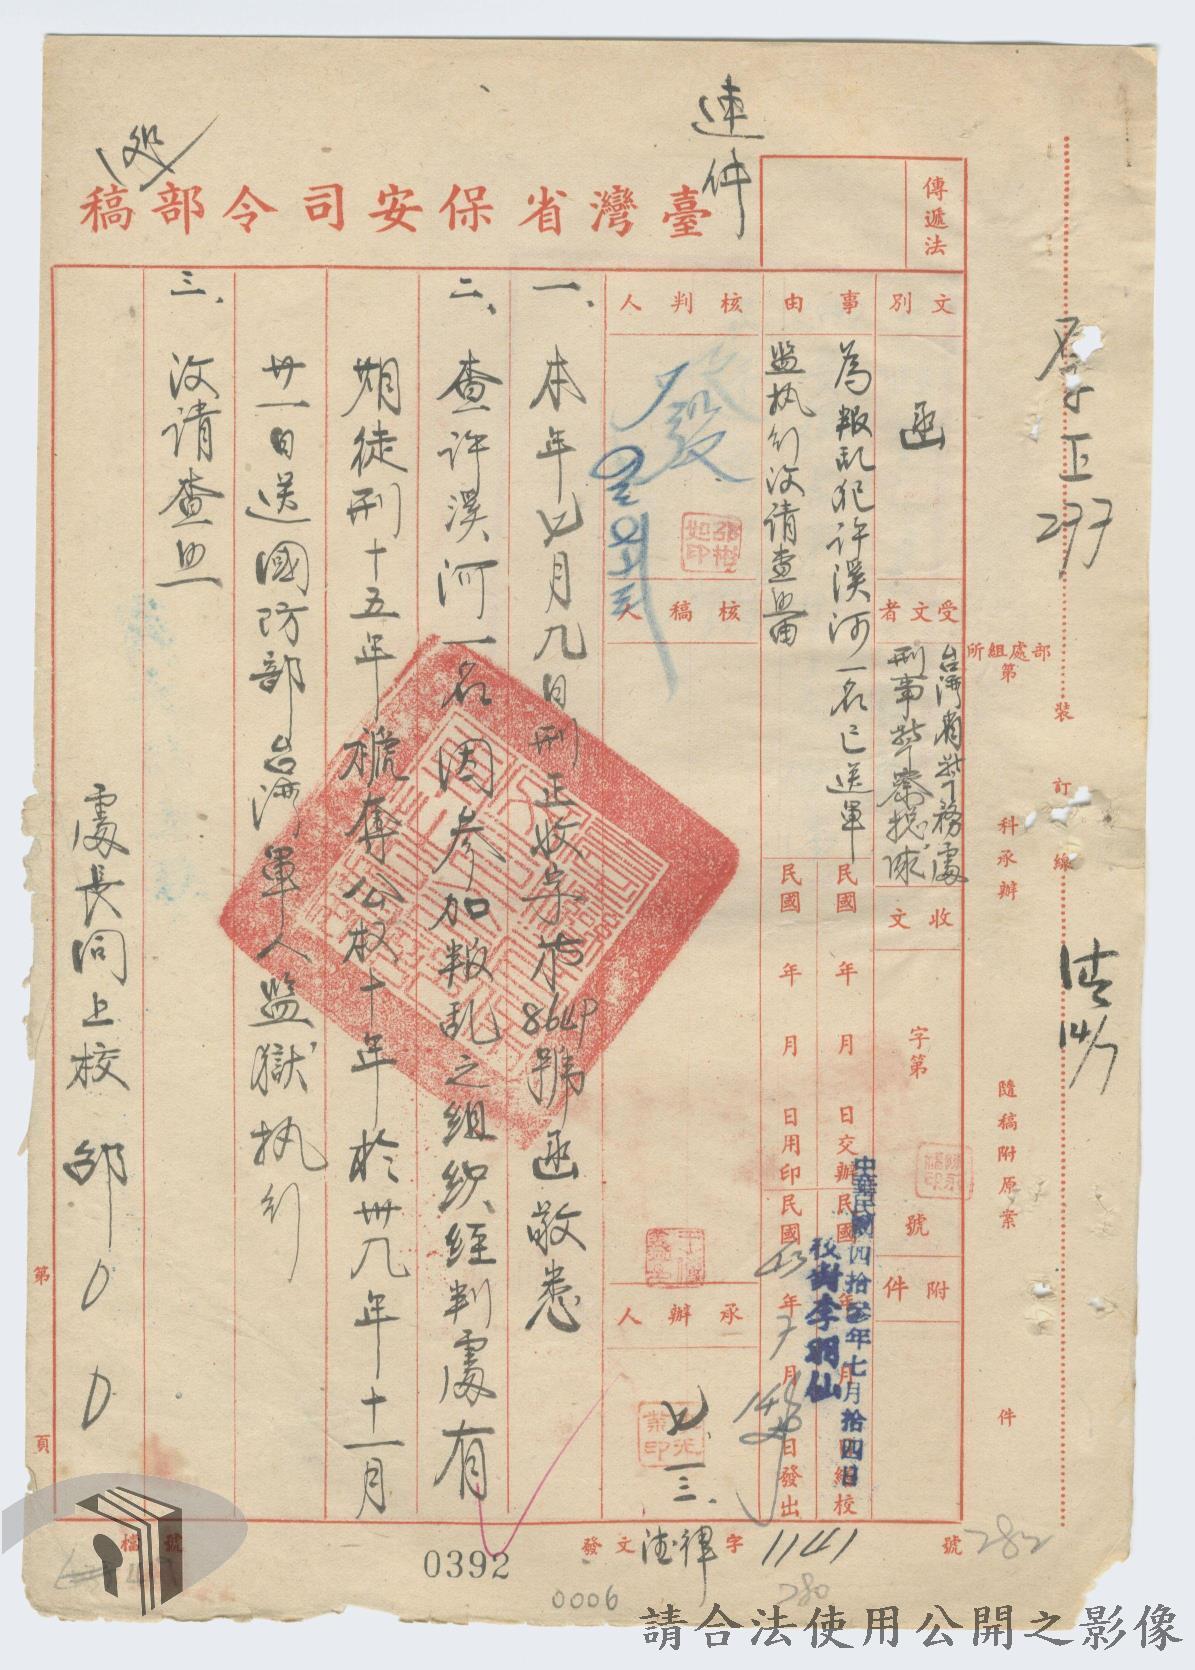 連件
臺灣省保安司令部稿
傳遞法
文別
函
受文者
台灣省警務處
刑事警察總隊
收文
字第
號
附件
事由
為叛乱犯許溪河一名已送軍
監执行汝請查照由
民國 年 月 日交辦
民國 年 月 日繕校
民國 年 月 日用印
民國43年7月14日發出
中華民國四拾叁年七月拾四日
校對李羽仙
核判人
發
核稿人
承辦人
七、三、
一、本年七月九日刑正收字第8649號函敬悉
二、查許溪河一名因參加叛乱之組織経判處有
期徒刑十五年褫奪公权十年於卅九年十一月
廿一日送國防部台灣軍人監獄执行
三、汝請查照
處長同上校 邵00
部處組所
第
科承辦
隨稿附原案
件
裝訂線
第
頁
檔號
發文
字1141號
0392
0006
280
282
請合法使用公開之影像